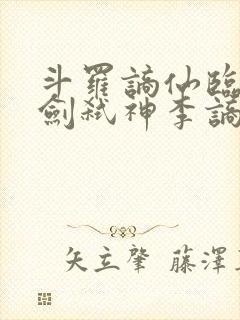 斗羅謫仙臨
劍弑神李謫
矢立肇 藤澤